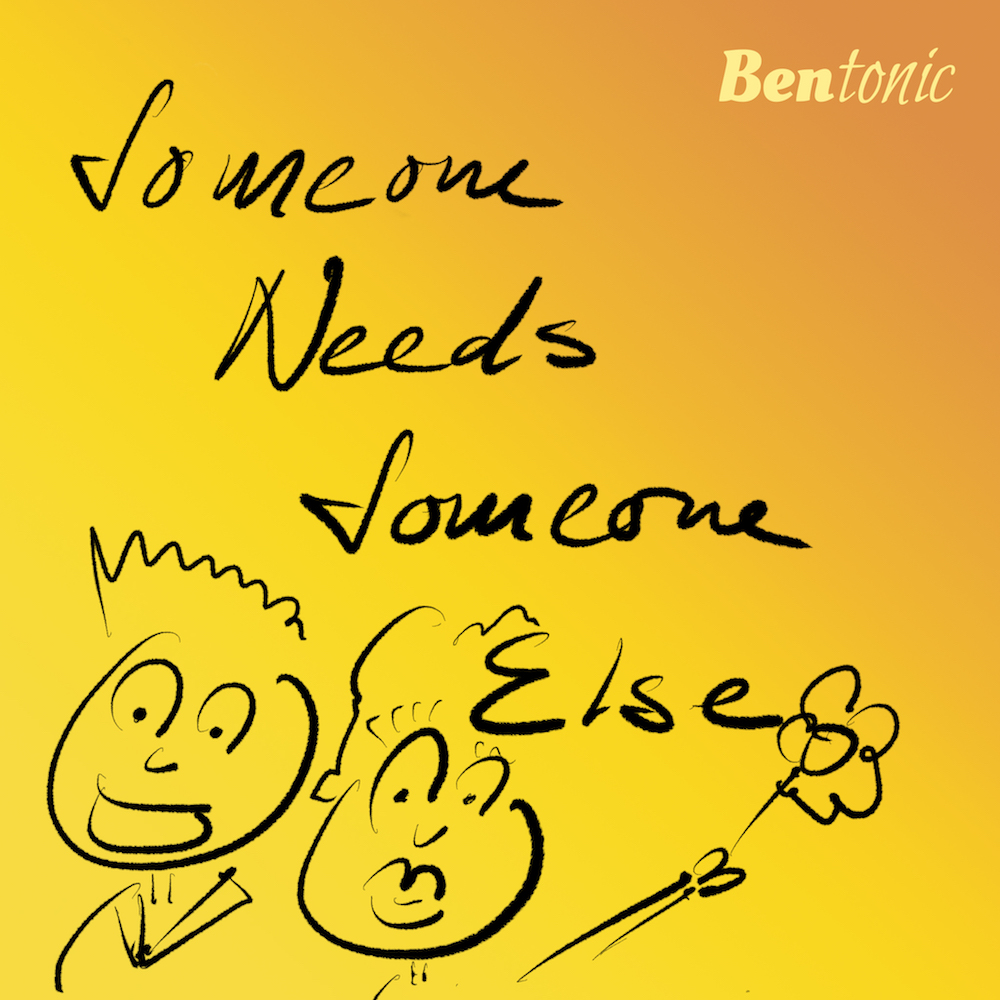 Bentonic
Someone
Needs
Someone
Else